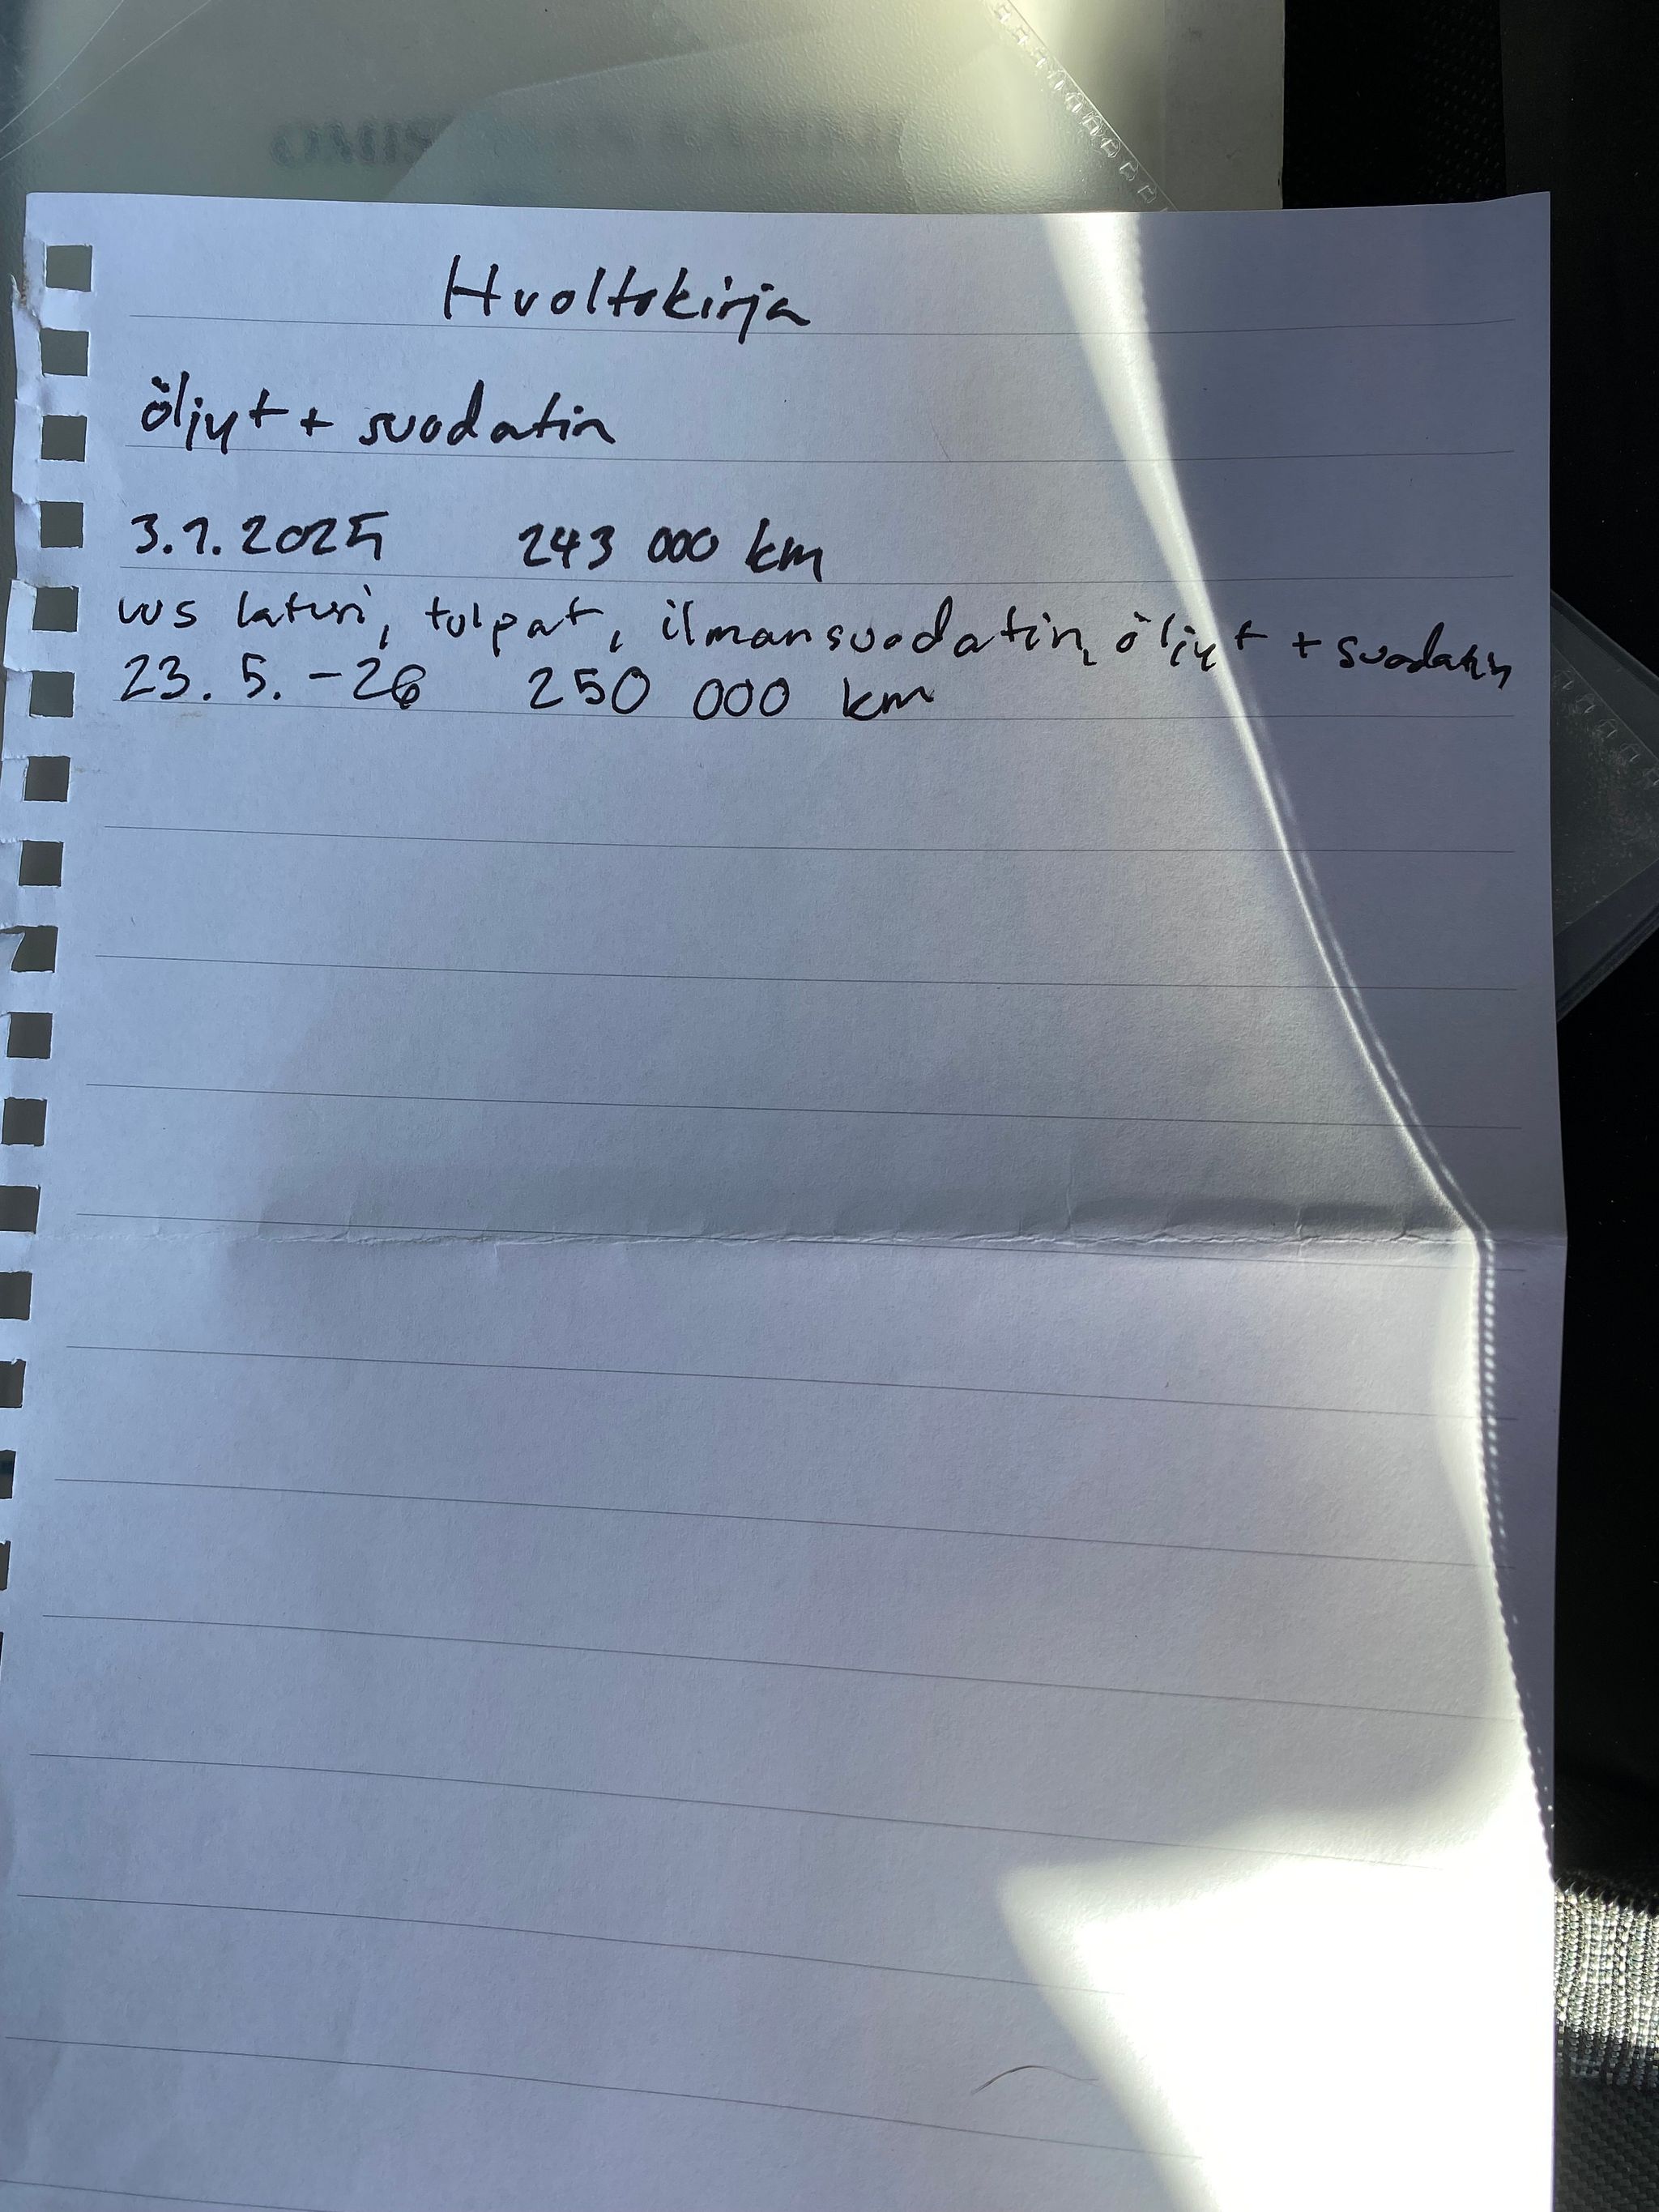 Huoltokirja
öljyt + suodatin
3.1.2025 243 000 km
uus laturi, tulpat, ilmansuodatin, öljyt + suodatin
23. 5. -26 250 000 km